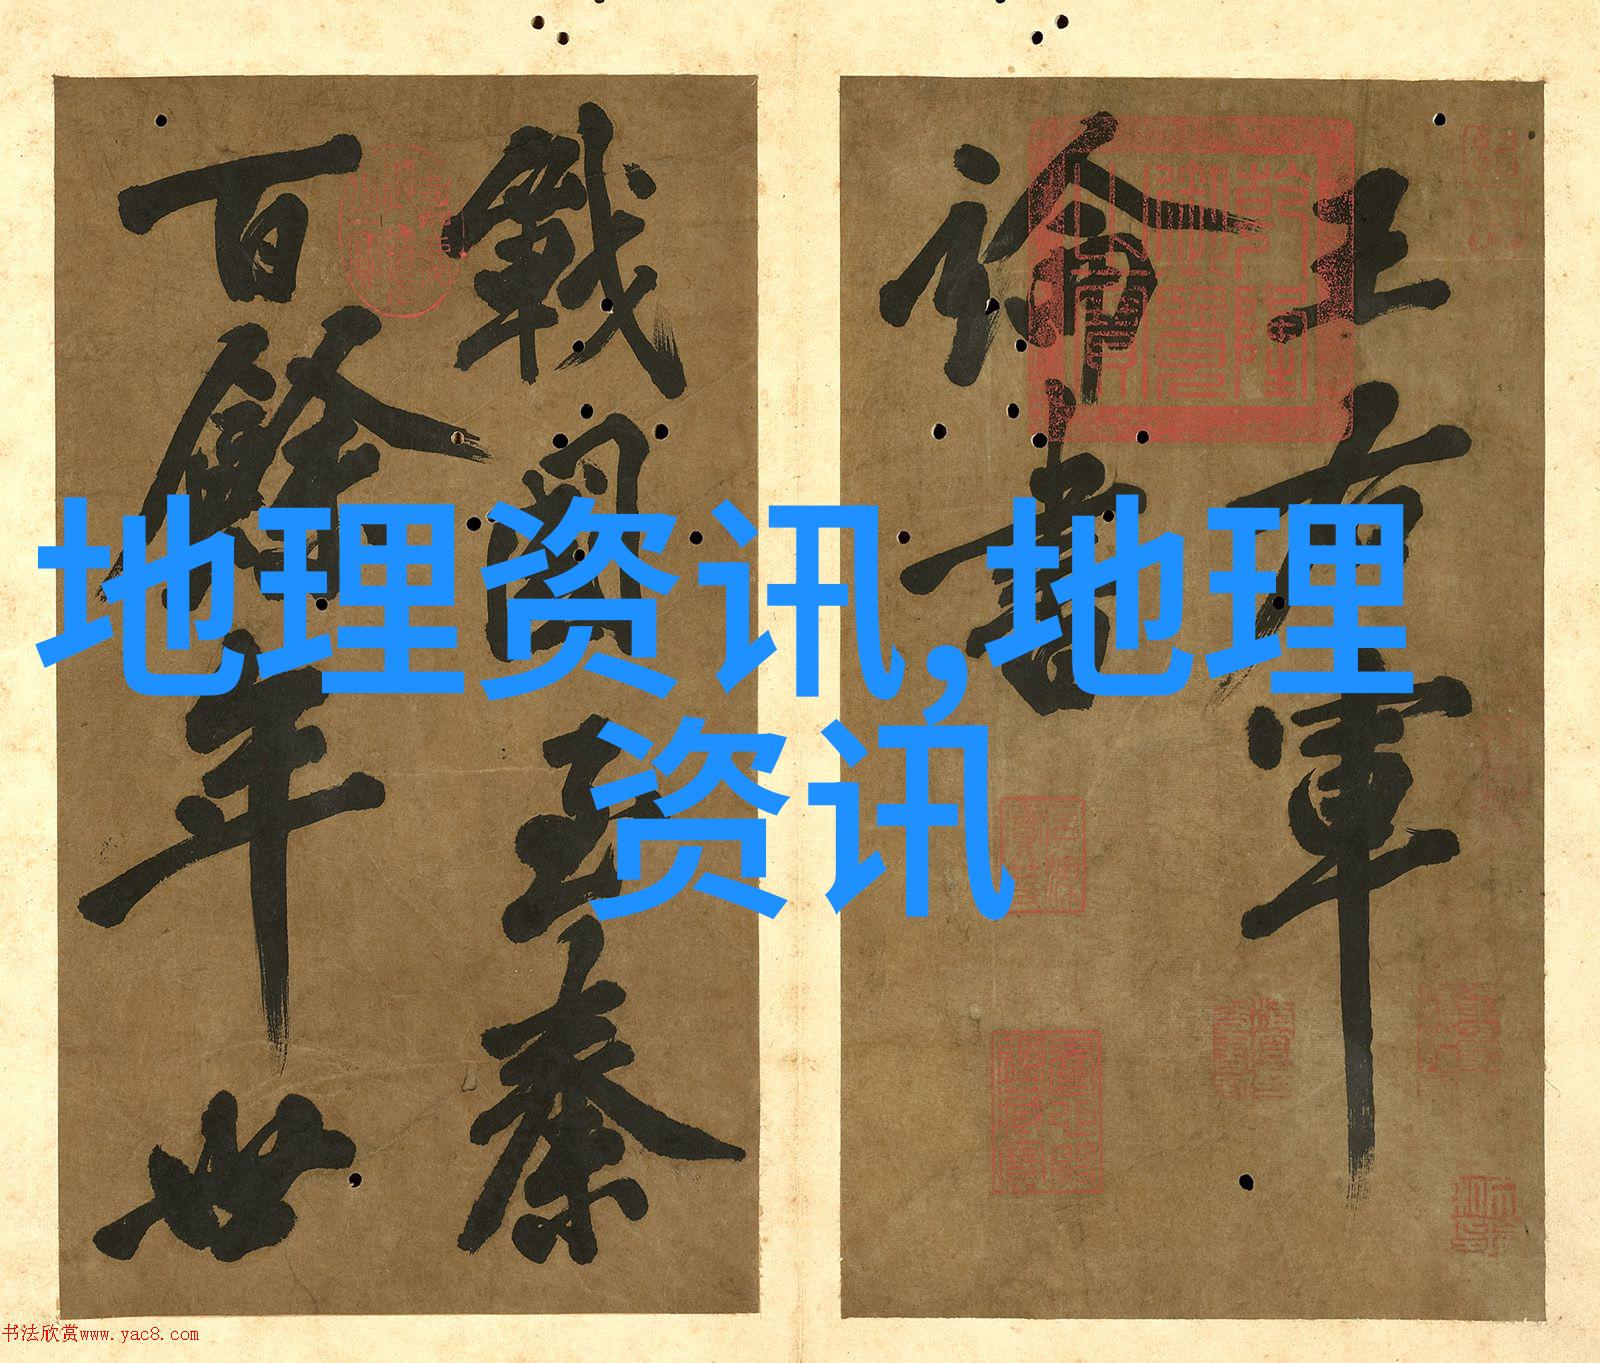 王右軍
論書
戰國至秦
百餘年世
乾隆御覽之寶
地理资讯,地理
资讯
书法欣赏www.yac8.com